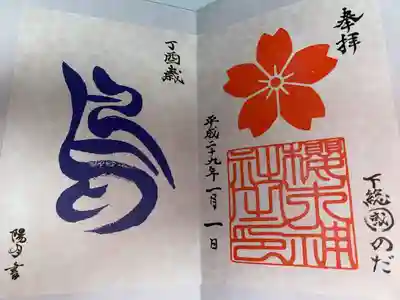 奉拝
櫻木神社之印
下総國のだ
平成二十九年一月一日
丁酉歳
鳥